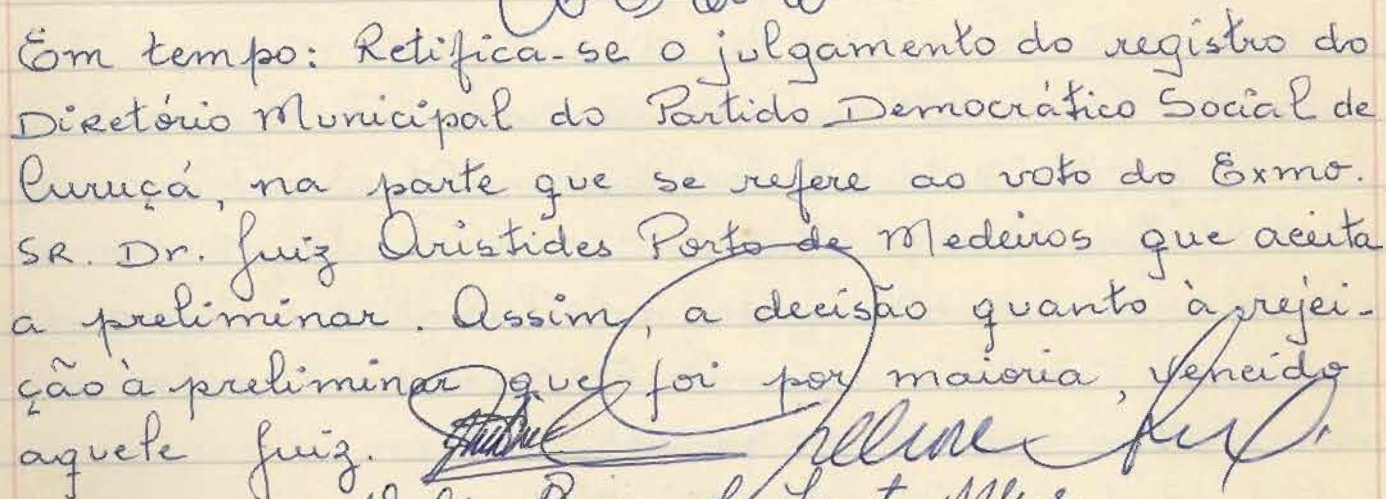 Em tempo: Retifica-se o julgamento do registro do
Diretório Municipal do Partido Democrático Social de
Curuçá, na parte que se refere ao voto do Exmo.
SR. Dr. Juiz Aristides Porto de Medeiros que aceita
a preliminar. Assim, a decisão quanto à rejei-
ção à preliminar que foi por maioria, vencido
aquele Juiz.